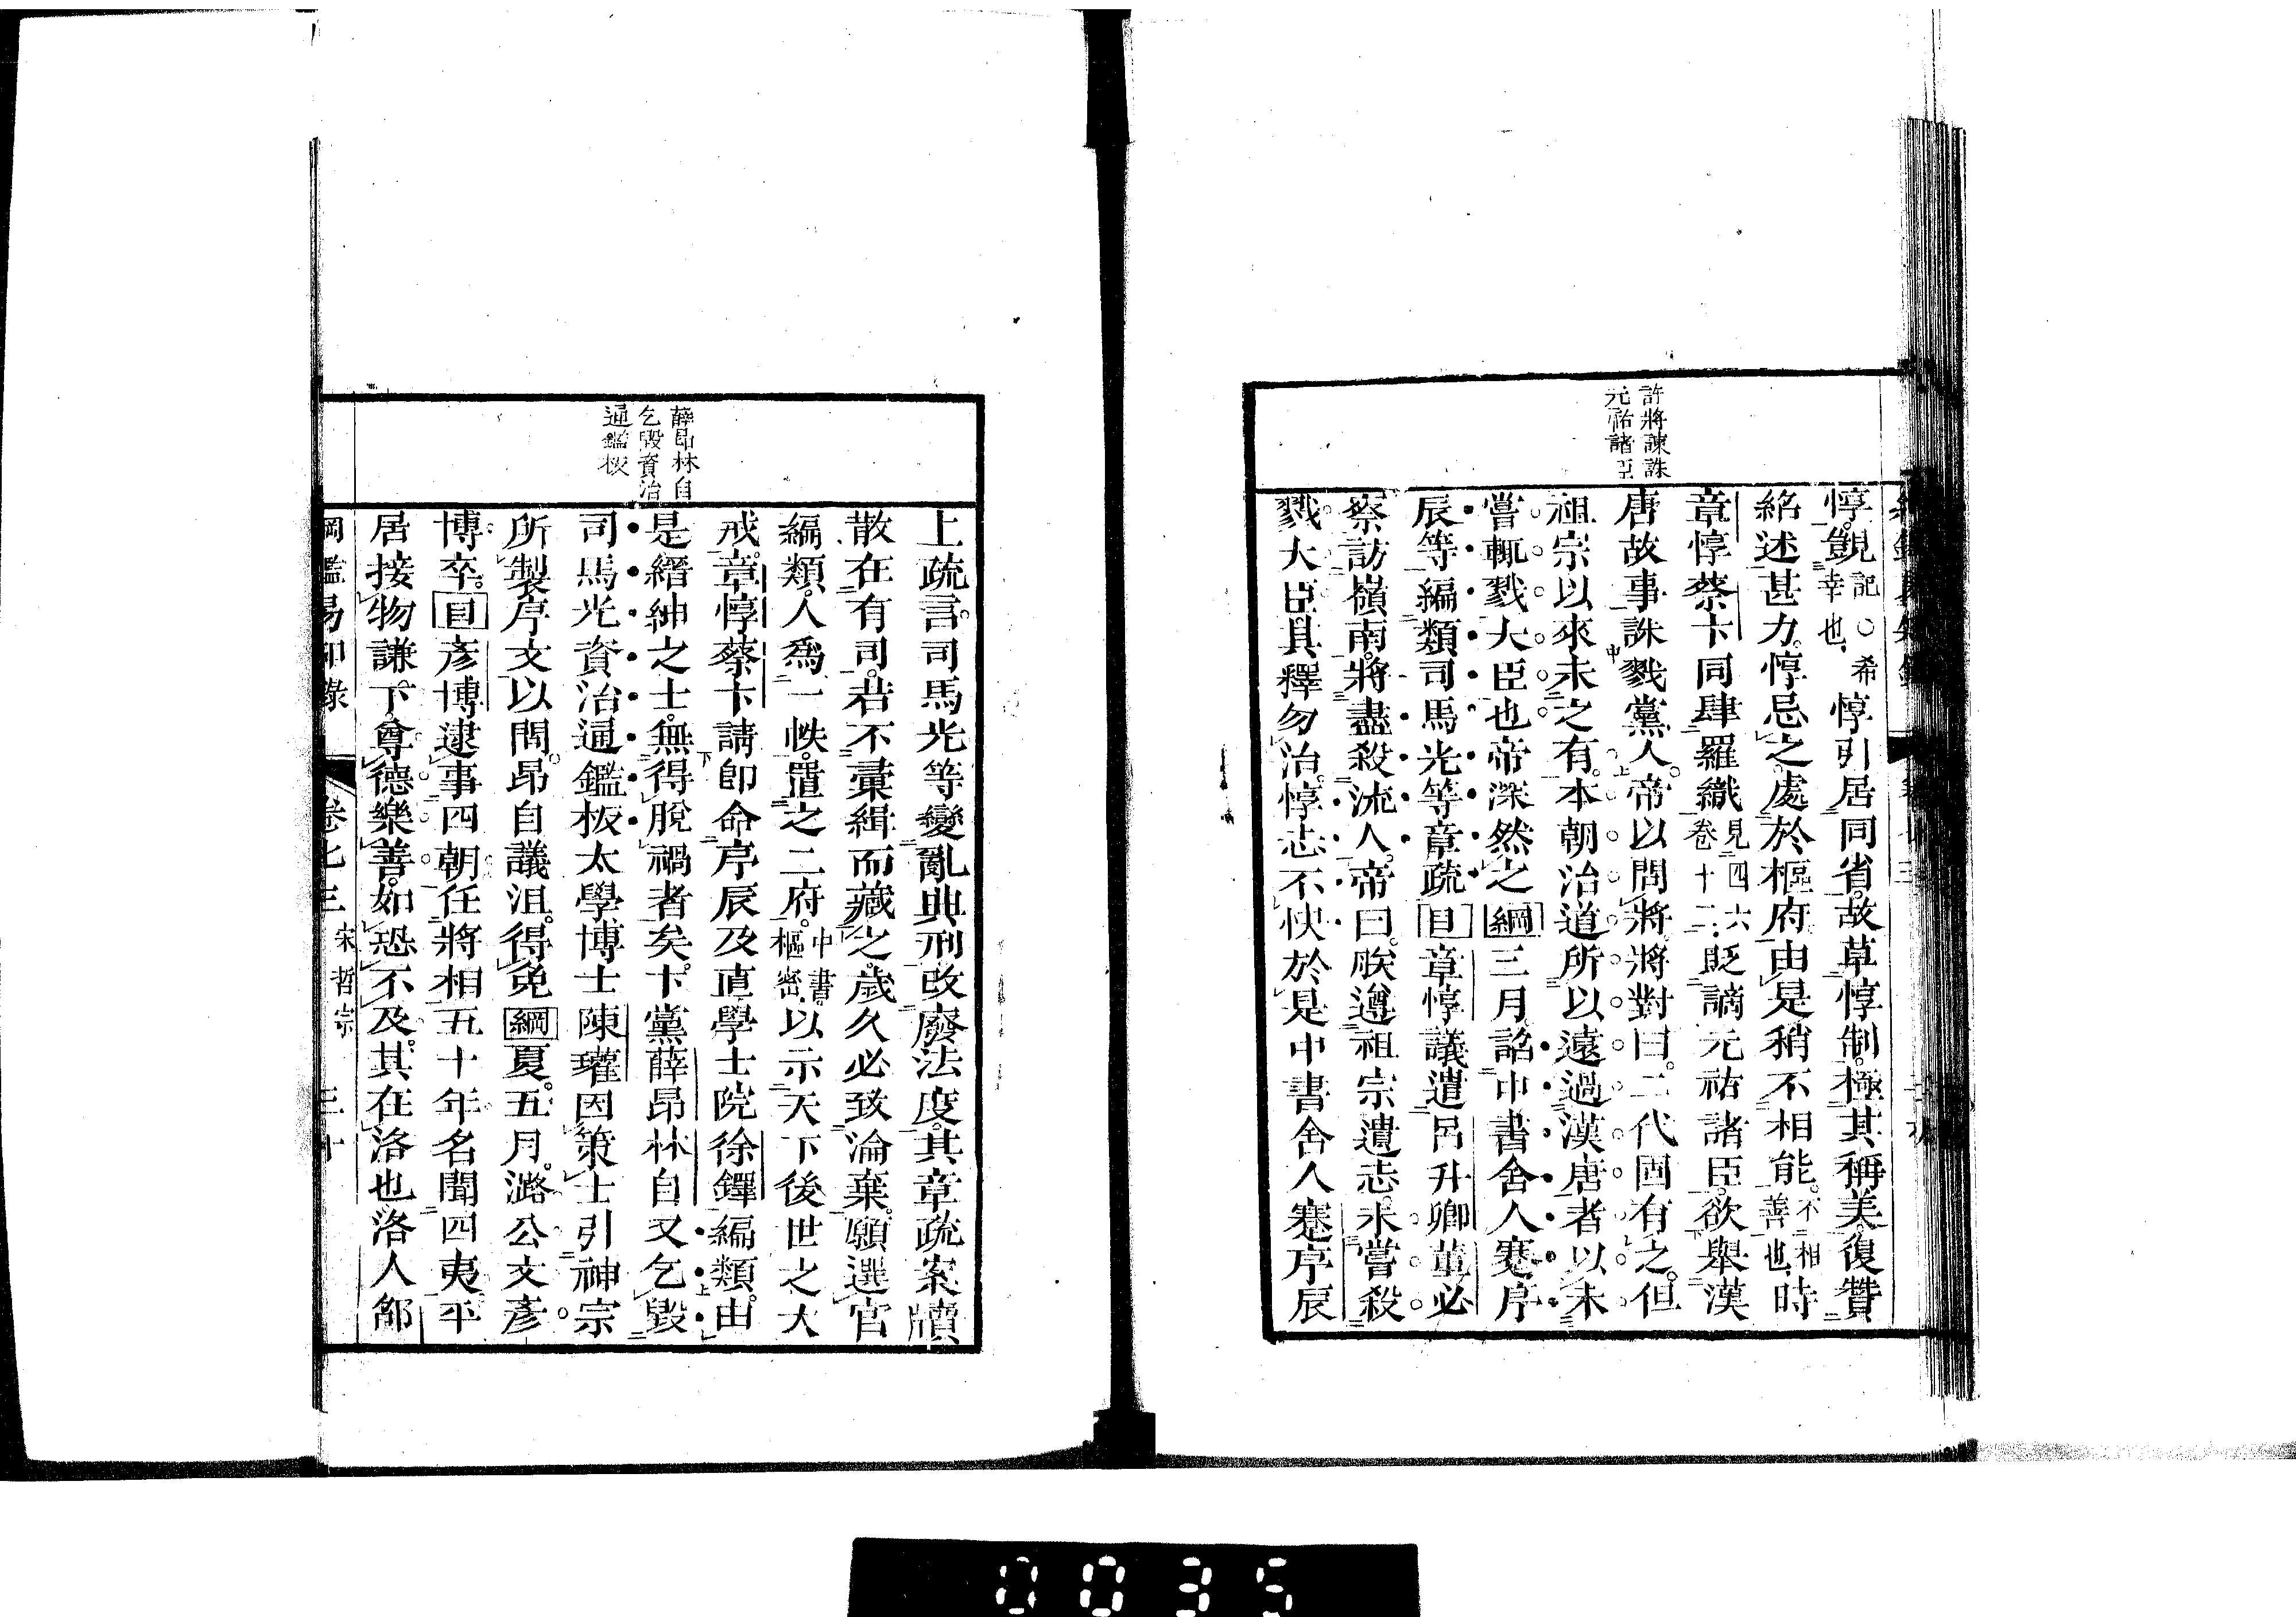 許將諫誅
元祐諸臣
惇。覬記○希幸也惇引居同省。故草惇制。極其稱美。復贊
紹述甚力。惇忌之。處於樞府。由是稍不相能。不相善也時
章惇蔡卞同肆羅織見四六卷十二貶謫元祐諸臣。欲舉漢
唐故事誅戮黨人。帝以問將。將對曰。二代固有之。但
祖宗以來未之有。本朝治道所以遠過漢唐者以未
嘗輒戮大臣也帝深然之綱三月詔中書舍人蹇序
辰等編類司馬光等章疏目章惇議遣呂升卿董必
察訪嶺南。將盡殺流人。帝曰。朕遵祖宗遺志。未嘗殺
戮大臣。其釋勿治。惇志不快於是中書舍人蹇序辰
薛昂林自
乞毀資治
通鑑板
上疏言。司馬光等變亂典刑改廢法度。其章疏案牘
散在有司。若不彙緝而藏之。歲久必致淪棄。願選官
編類。人爲一帙。置之二府。中書樞密以示天下後世之大
戒。章惇蔡卞請卽命序辰及直學士院徐鐸編類。由
是縉紳之士。無得脫禍者矣。卞黨薛昂林自又乞毀
司馬光資治通鑑板太學博士陳瓘因策士引神宗
所製序文以問。昂自議沮。得免綱夏。五月。潞公文彥
博卒。目彥博逮事四朝任將相五十年名聞四夷。平
居接物謙下。尊德樂善。如恐不及。其在洛也。洛人邵
綱鑑易知錄 卷七三 宋哲宗 三十
0035